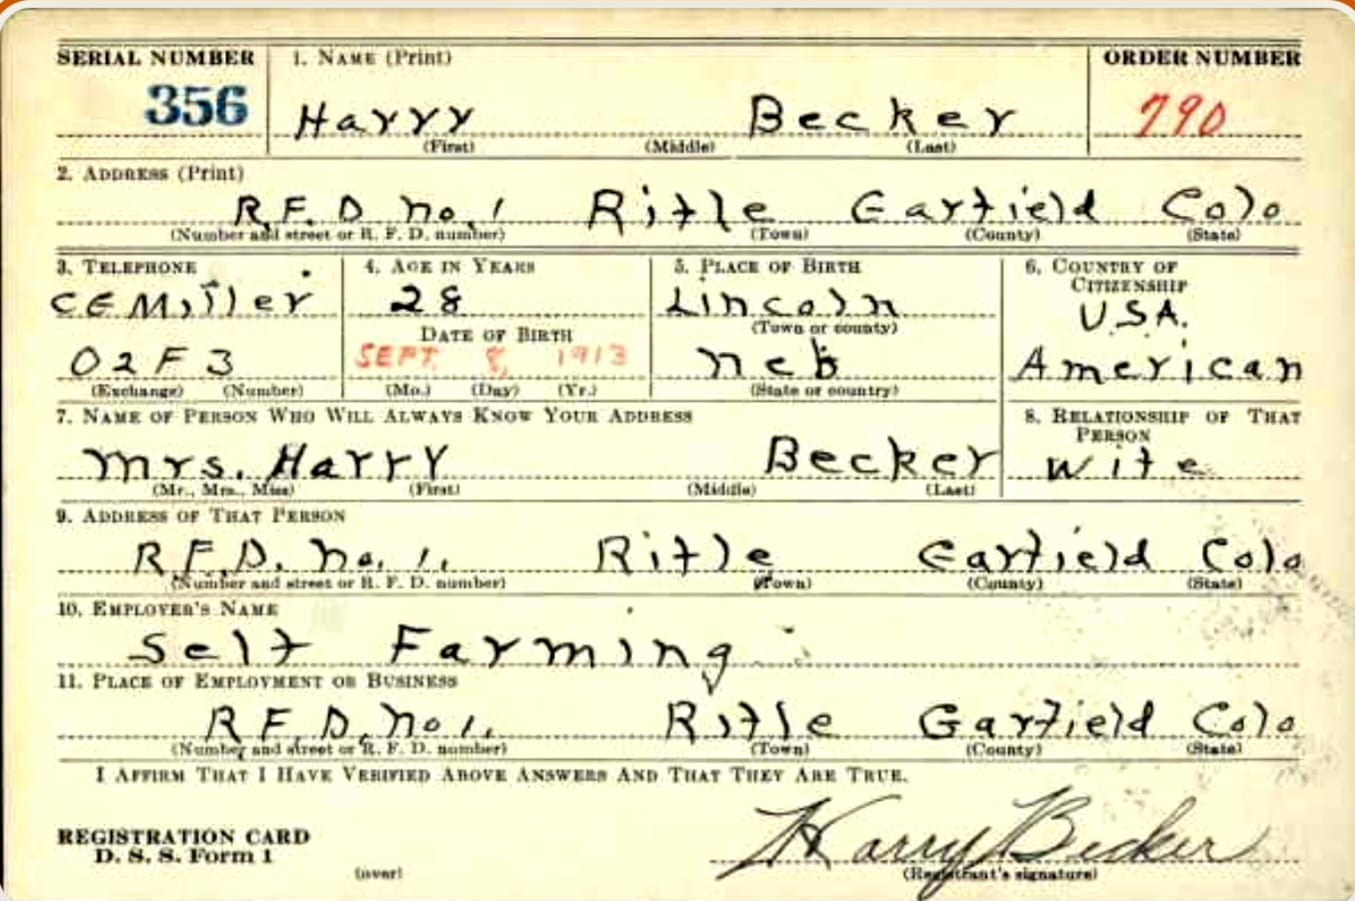 SERIAL NUMBER 1. NAME (Print) ORDER NUMBER
356 Harry Becker 790
(First) (Middle) (Last)
2. ADDRESS (Print)
R.F.D no. 1 Rifle Garfield Colo
(Number and street or R. F. D. number) (Town) (County) (State)
3. TELEPHONE 4. AGE IN YEARS 5. PLACE OF BIRTH 6. COUNTRY OF CITIZENSHIP
CEMiller 28 Lincoln U.S.A.
DATE OF BIRTH (Town or county)
02F3 SEPT. 8, 1913 neb American
(Exchange) (Number) (Mo.) (Day) (Yr.) (State or country)
7. NAME OF PERSON WHO WILL ALWAYS KNOW YOUR ADDRESS 8. RELATIONSHIP OF THAT PERSON
mrs. Harry Becker wife
(Mr., Mrs., Miss) (First) (Middle) (Last)
9. ADDRESS OF THAT PERSON
R.F.D. no. 1. Rifle Garfield Colo
(Number and street or R. F. D. number) (Town) (County) (State)
10. EMPLOYER'S NAME
Self Farming
11. PLACE OF EMPLOYMENT OR BUSINESS
R.F.D. no 1. Rifle Garfield Colo
(Number and street or R. F. D. number) (Town) (County) (State)
I AFFIRM THAT I HAVE VERIFIED ABOVE ANSWERS AND THAT THEY ARE TRUE.
REGISTRATION CARD Harry Becker
D. S. S. Form 1
(over) (Registrant's signature)